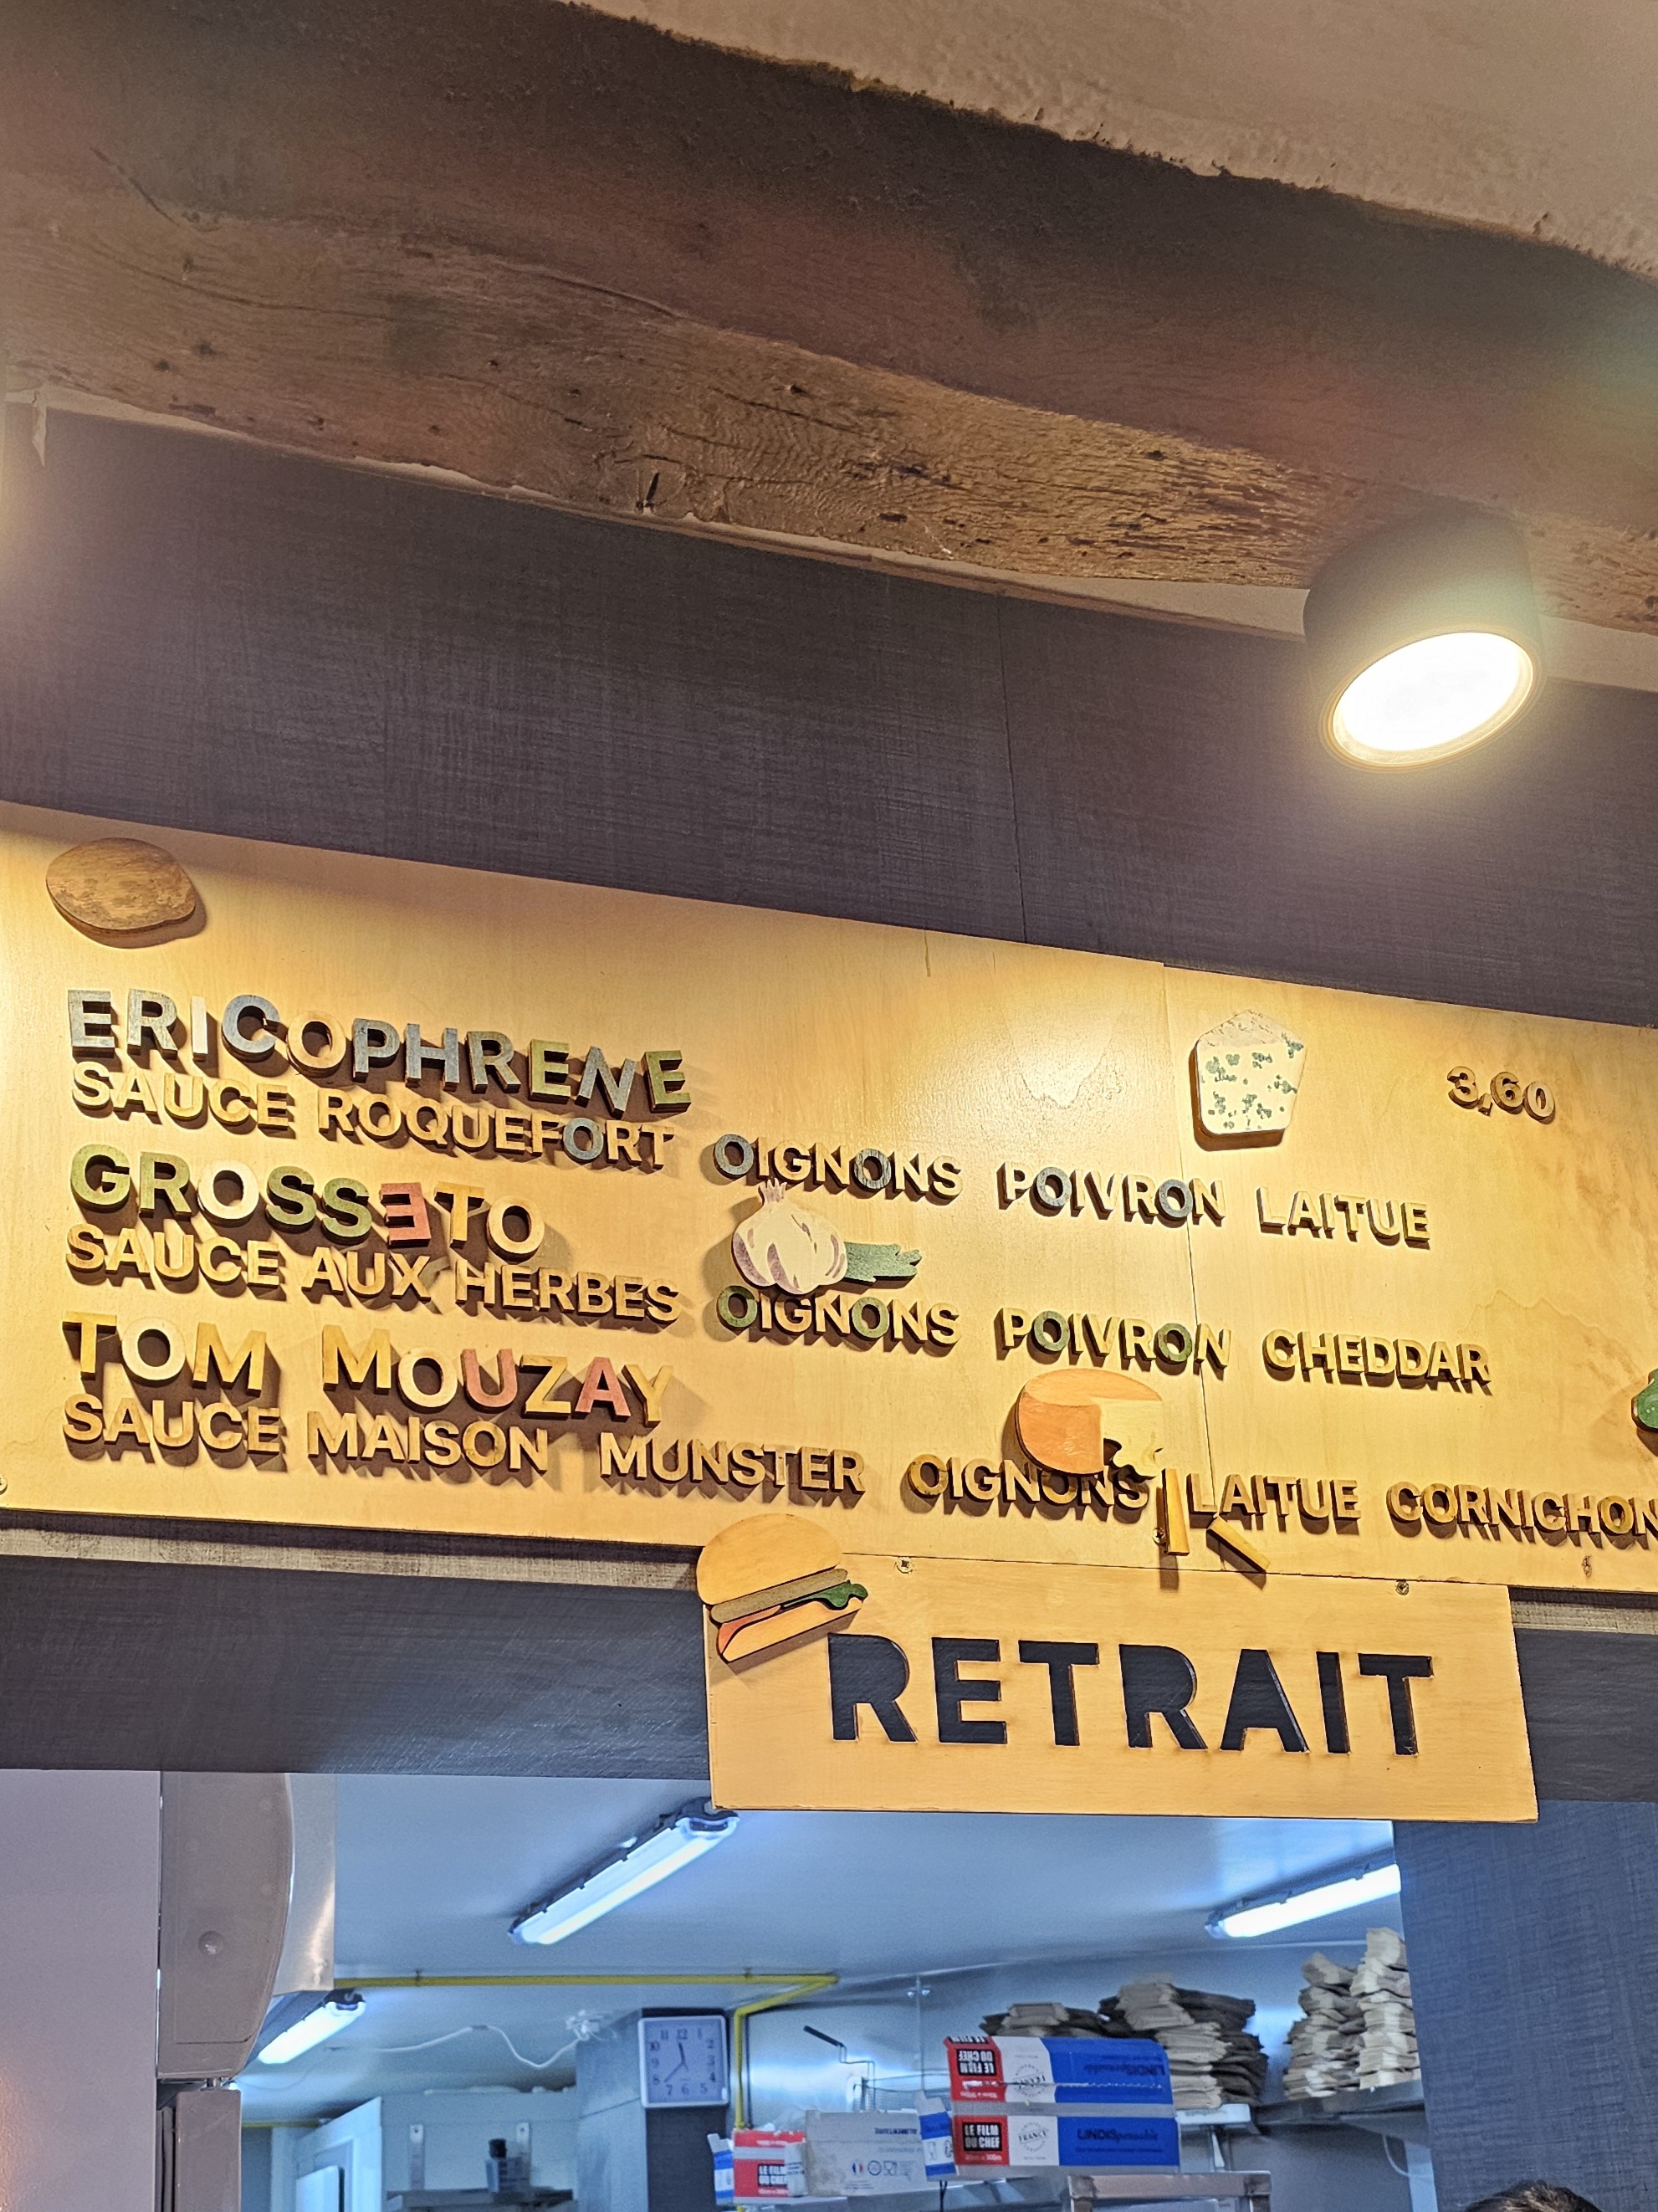 ERICOPHRENE 3,60
SAUCE ROQUEFORT OIGNONS POIVRON LAITUE
GROSSETO
SAUCE AUX HERBES OIGNONS POIVRON CHEDDAR
TOM MOUZAY
SAUCE MAISON MUNSTER OIGNONS LAITUE CORNICHON
RETRAIT
11 12 1
10 2
9 3
8 4
7 6 5
LE FILM
DU CHEF
LINDISpensable
LE FILM
DU CHEF
FRANCE
LINDISpensable
LE FILM
DU CHEF